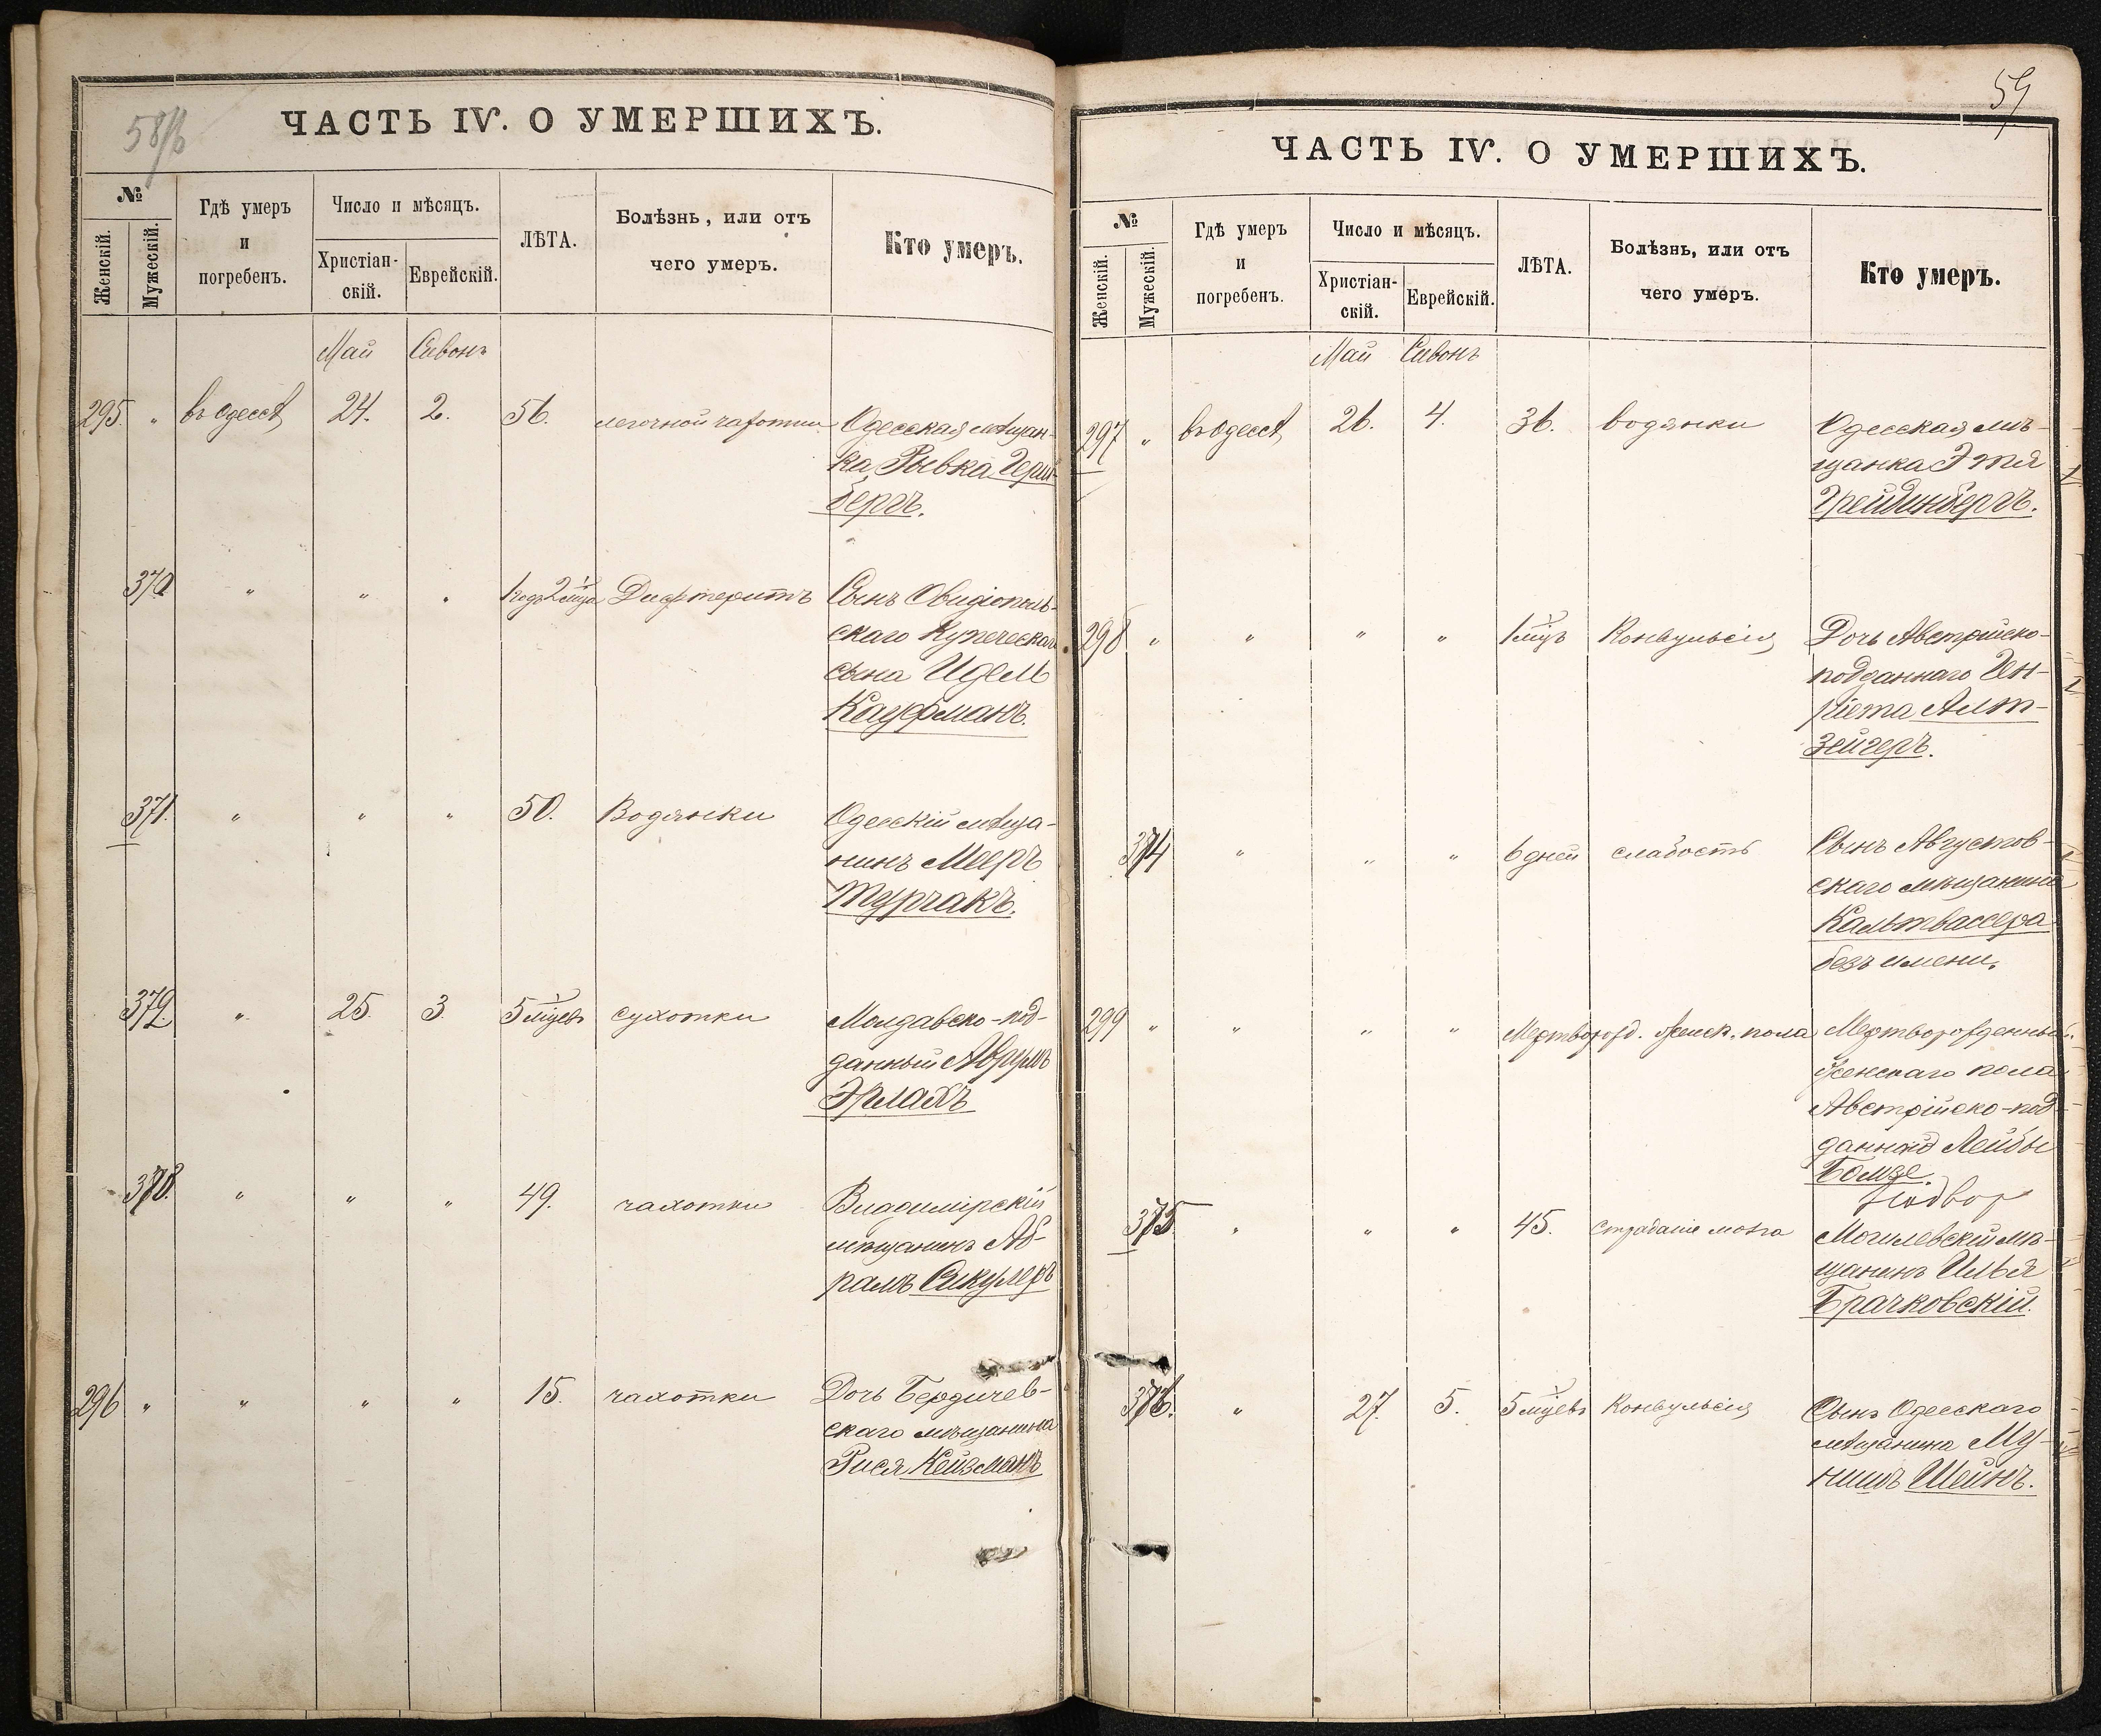 58/б
ЧАСТЬ IV. О УМЕРШИХЪ.
№
Женскій.
Мужескій.
Гдѣ умеръ
и
погребенъ.
Число и мѣсяцъ.
Христіан-
скій.
Еврейскій.
ЛѢТА.
Болѣзнь, или отъ
чего умеръ.
Кто умеръ.
Май Сивонъ
295. " въ Одессѣ 24. 2. 56. легочной чахотки Одесская мѣщан-
ка Рывка Герш-
бергъ.
370 " " " 1 годъ 2 мца Дифтеритъ Сынъ Овидіополь-
скаго Купеческаго
сына Идель
Кауфманъ.
371. " " " 50. Водянки Одесскій мѣща-
нинъ Мееръ
Турчакъ.
372. " 25. 3. 5 мцевъ сухотки Молдавско-под-
данный Аврумъ
Эрлахъ
373. " " " 49. чахотки Владимірскій
мѣщанинъ Аб-
рамъ Сикулеръ
296 " " " " 15. чахотки Дочь Бердичев-
скаго мѣщанина
Рися Кейзманъ
59
ЧАСТЬ IV. О УМЕРШИХЪ.
№
Женскій.
Мужескій.
Гдѣ умеръ
и
погребенъ.
Число и мѣсяцъ.
Христіан-
скій.
Еврейскій.
ЛѢТА.
Болѣзнь, или отъ
чего умеръ.
Кто умеръ.
Май Сивонъ
297 " въ Одессѣ 26. 4. 36. водянки Одесская мѣ-
щанка Этя
Грейдинбергъ.
298 " " " " 1 мцъ Конвульсія Дочь Австрійско-
подданнаго Ген-
ріета Алт-
зейгеръ.
374 " " " 6 дней слабость Сынъ Августов-
скаго мѣщанина
Кальтвассера
безъ имени.
299 " " " " Мертворожд. женск. пола Мертворожденный
женскаго пола
Австрійско-под-
данной Лейбы
Бомзе.
375 " " " 45. страданіе мозга Могилевскій мѣ-
щанинъ Илья
Брачковскій.
376. " 27. 5. 5 мцевъ Конвульсія Сынъ Одесскаго
мѣщанина Му-
нишъ Шейнъ.